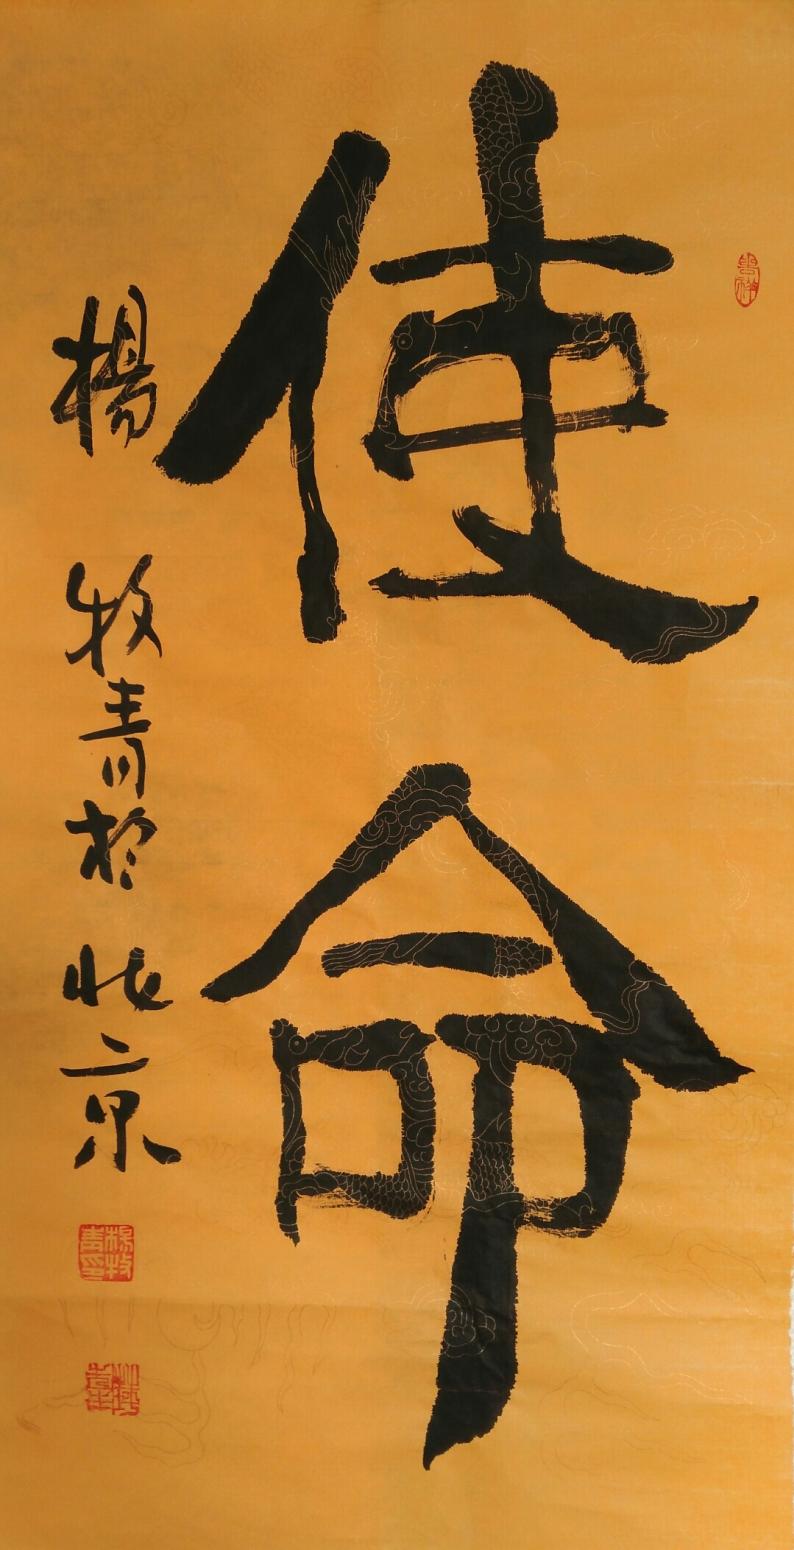 使命
楊牧青於北京
楊牧青印